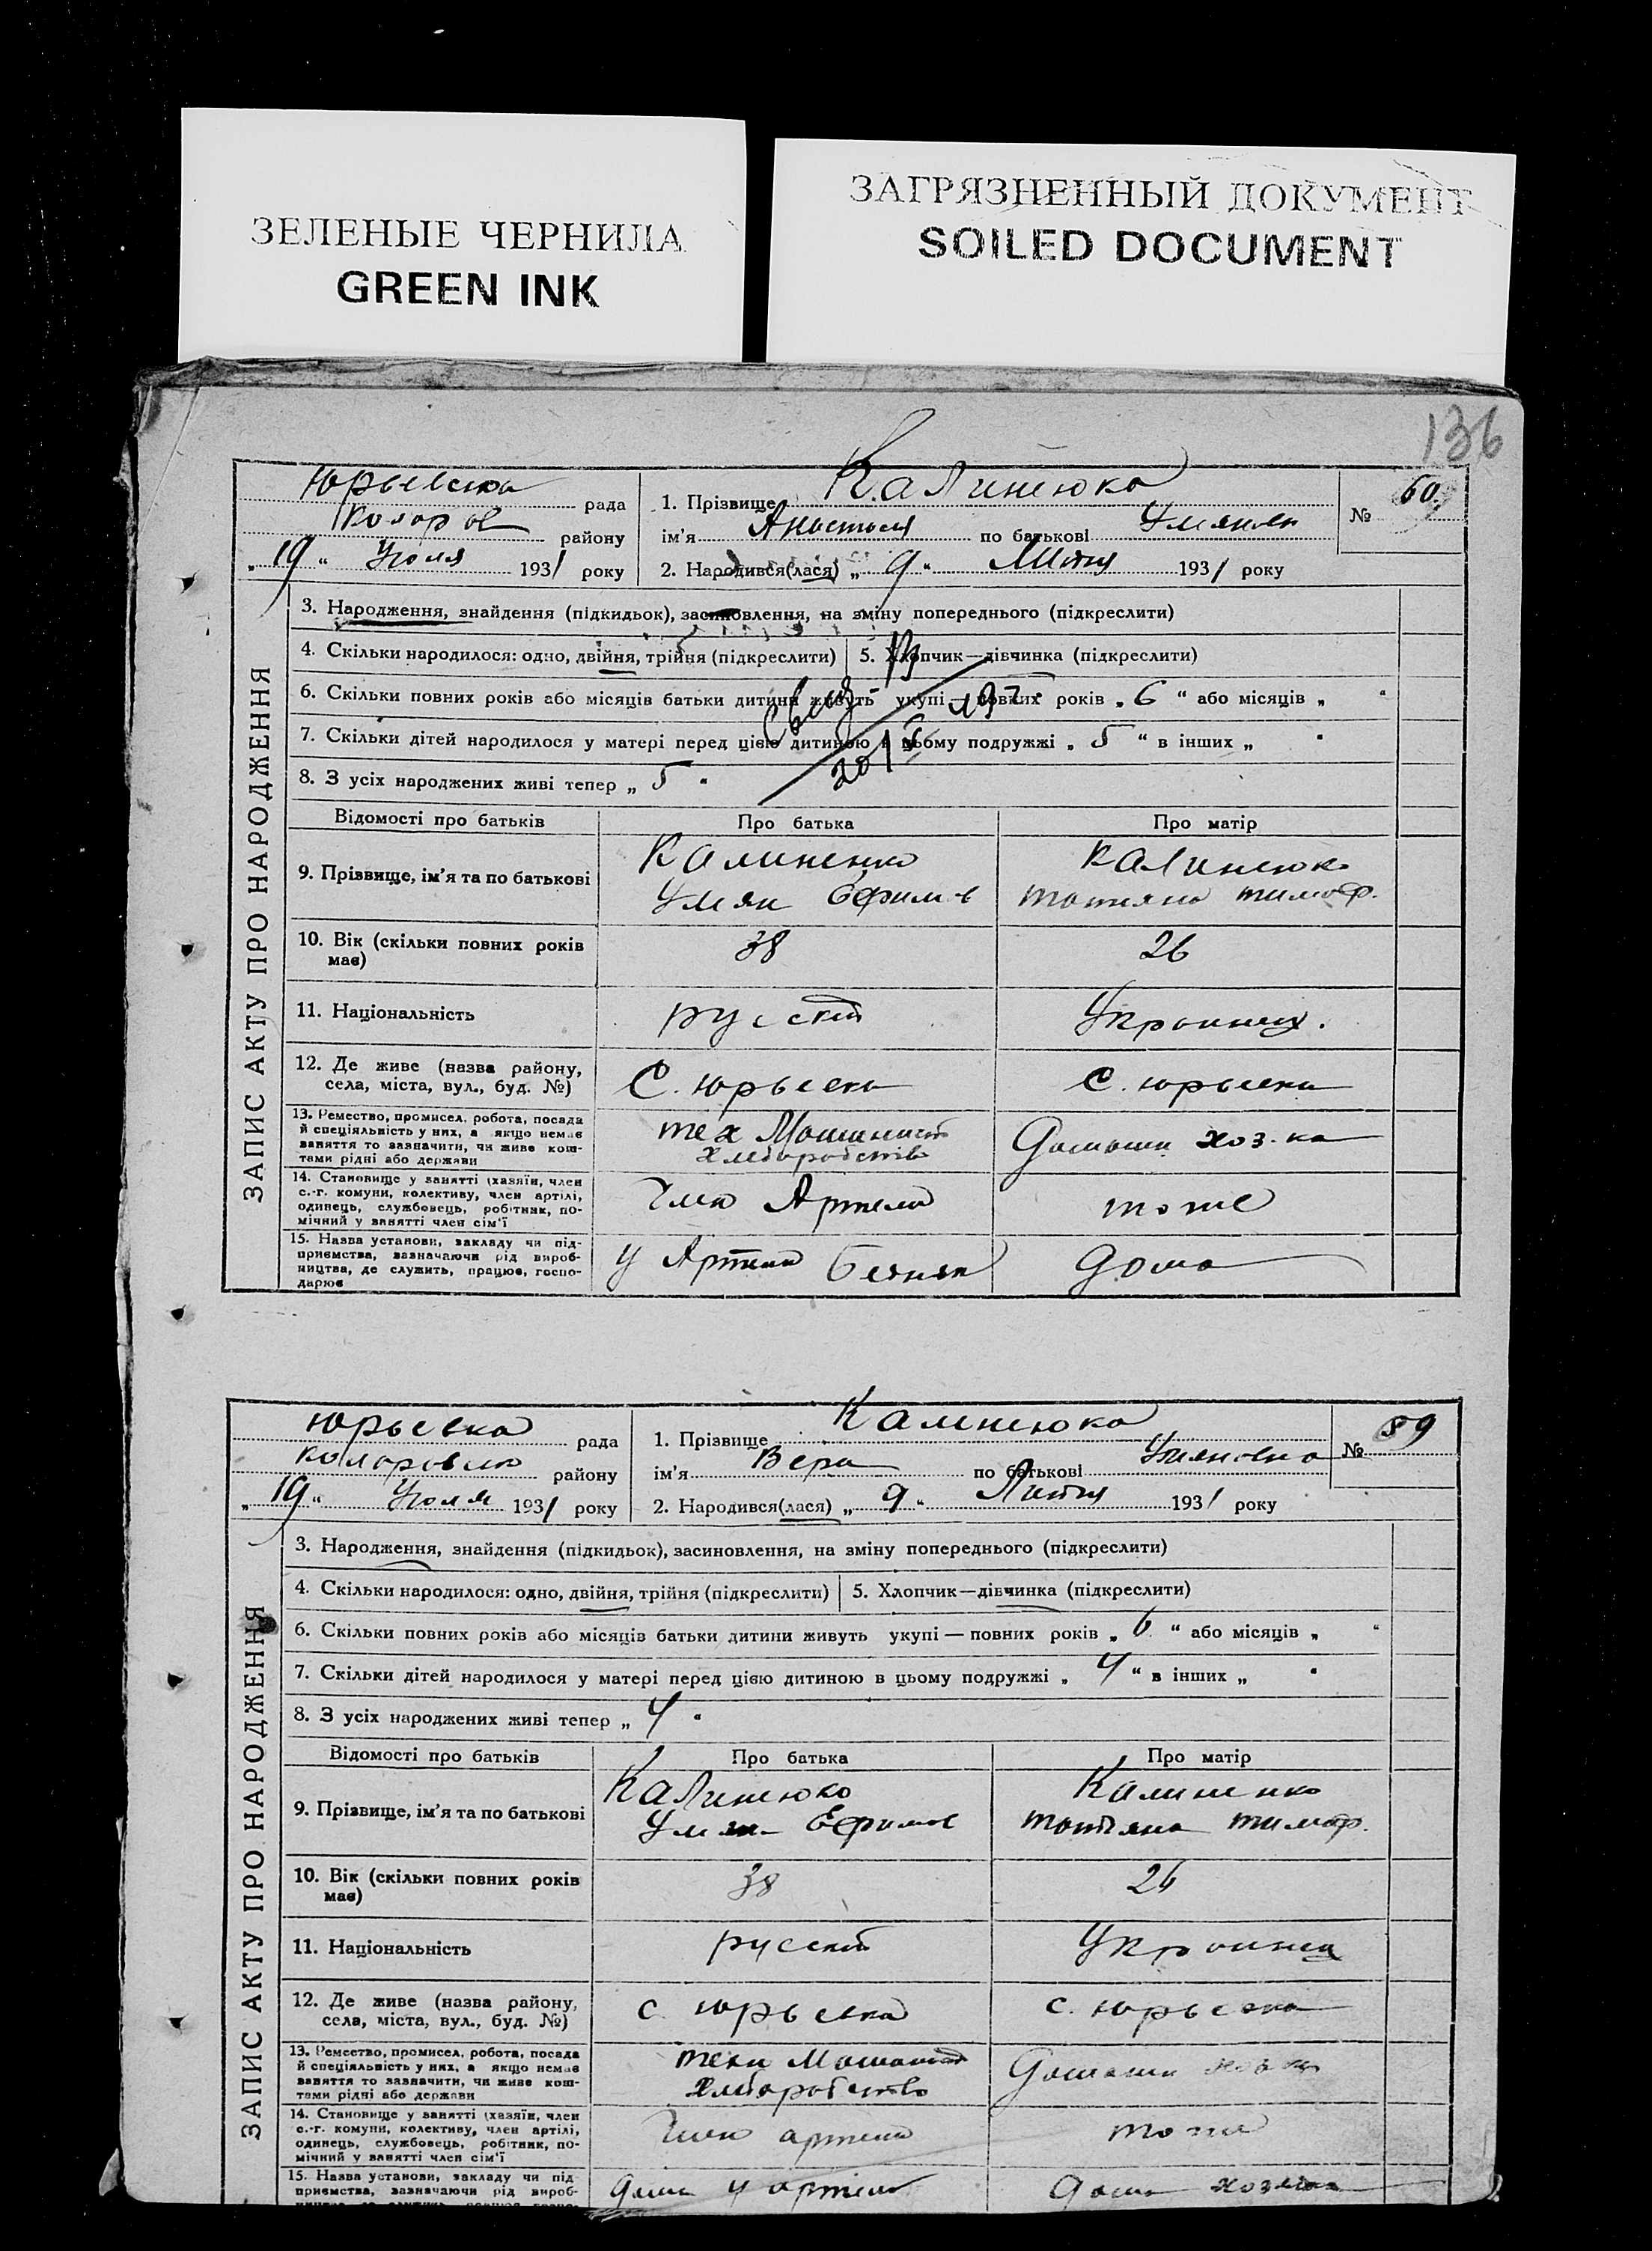 ЗЕЛЕНЫЕ ЧЕРНИЛА
GREEN INK
ЗАГРЯЗНЕННЫЙ ДОКУМЕНТ
SOILED DOCUMENT
136
Юрьевска рада
Коларов району
„19“ Июля 1931 року
1. Прізвище Калиненко
ім'я Анастасия по батькові
2. Народився(лася) „9“ 1931 року
№ 60
ЗАПИС АКТУ ПРО НАРОДЖЕННЯ
3. Народження, знайдення (підкидьок), засиновлення, на зміну попереднього (підкреслити)
4. Скільки народилося: одно, двійня, трійня (підкреслити) 5. Хлопчик—дівчинка (підкреслити)
6. Скільки повних років або місяців батьки дитини живуть укупі — повних років „6“ або місяців „ “
7. Скільки дітей народилося у матері перед цією дитиною в цьому подружжі „5“ в інших „ “
8. З усіх народжених живі тепер „5“
Відомості про батьків Про батька Про матір
9. Прізвище, ім'я та по батькові
Калиненко Калиненко
Умян Ефимов Татияна Тимоф.
10. Вік (скільки повних років має) 38 26
11. Національність русский Украинц.
12. Де живе (назва району, села, міста, вул., буд. №)
С. Юрьевка С. Юрьевка
13. Ремество, промисел, робота, посада
й спеціяльність у них, а якщо немає
заняття то зазначити, чи живе кош-
тами рідні або держави
тех Машинист Домашн хоз-ка
Хлеборобство
14. Становище у занятті (хазяїн, член
с.-г. комуни, колективу, член артілі,
одинець, службовець, робітник, по-
мічний у занятті член сім'ї
Член Артели тоже
15. Назва установи, закладу чи під-
приємства, зазначаючи рід вироб-
ництва, де служить, працює, госпо-
дарює
у Артели дома
Юрьевка рада
Коларовка району
„19“ Июля 1931 року
1. Прізвище Калиненко
ім'я Вера по батькові Умяновна
2. Народився(лася) „9“ 1931 року
№ 89
ЗАПИС АКТУ ПРО НАРОДЖЕННЯ
3. Народження, знайдення (підкидьок), засиновлення, на зміну попереднього (підкреслити)
4. Скільки народилося: одно, двійня, трійня (підкреслити) 5. Хлопчик—дівчинка (підкреслити)
6. Скільки повних років або місяців батьки дитини живуть укупі — повних років „6“ або місяців „ “
7. Скільки дітей народилося у матері перед цією дитиною в цьому подружжі „4“ в інших „ “
8. З усіх народжених живі тепер „4“
Відомості про батьків Про батька Про матір
9. Прізвище, ім'я та по батькові
Калиненко Калиненко
Умян Ефимов Татьяна Тимоф.
10. Вік (скільки повних років має) 38 26
11. Національність русский Украинка
12. Де живе (назва району, села, міста, вул., буд. №)
с. Юрьевка с. Юрьевка
13. Ремество, промисел, робота, посада
й спеціяльність у них, а якщо немає
заняття то зазначити, чи живе кош-
тами рідні або держави
техн Машинист Домашн
Хлеборобство
14. Становище у занятті (хазяїн, член
с.-г. комуни, колективу, член артілі,
одинець, службовець, робітник, по-
мічний у занятті член сім'ї
Член артели тоже
15. Назва установи, закладу чи під
приємства, зазначаючи рід вироб-
у артели